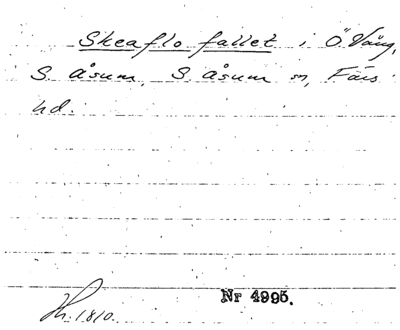 Skeaflo fallet i Ö. Vång,
S. Åsum, S. Åsum sn, Färs
hd.
Nr 4995.
Kh. 1810.